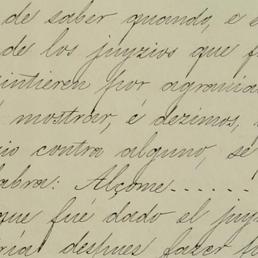 de saber quando, e e
de los juyzios que f
sintieren por agravia
mostrar, é dezimos,
io contra alguno, se
labra: Alçome......
que fué dado el juy
ría despues fazer fu